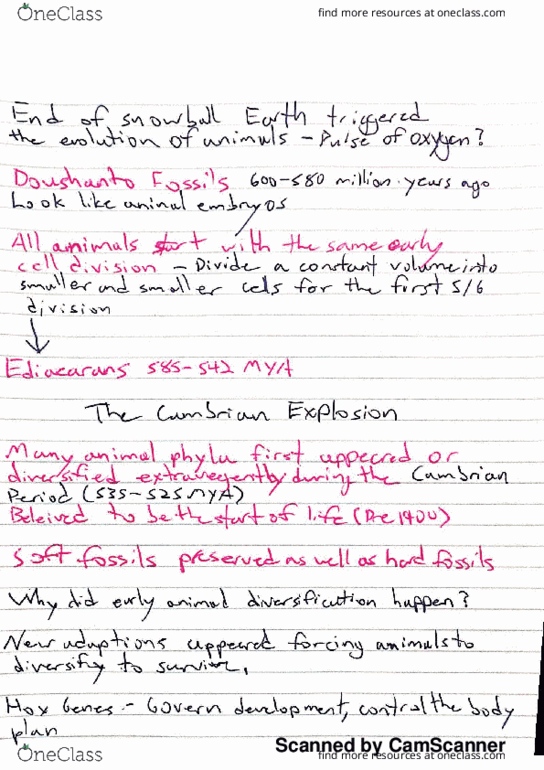 OneClass
find more resources at oneclass.com
End of snowball Earth triggered
the evolution of animals - Pulse of oxygen?
Doushanto Fossils 600-580 million years ago
Look like animal embryos
All animals start with the same early
cell division - Divide a constant volume into
smaller and smaller cels for the first 5/6
division
Ediacarans 585-542 MYA
The Cambrian Explosion
Many animal phyla first appeared or
diversified during the Cambrian
Period (535-525 MYA)
Beleived to be the start of life (Pre 1900)
Soft fossils preserved as well as hard fossils
Why did early animal diversification happen?
New adaptions appeared forcing animals to
diversify to survive.
Hox Genes - Govern development, control the body
plan
Scanned by CamScanner
OneClass
find more resources at oneclass.com